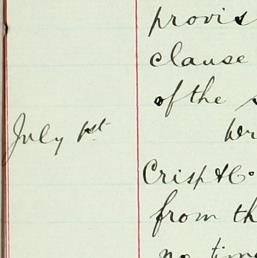 provis
clause
of the s
July 1st
Wr
Crisp & Co
from th
no time